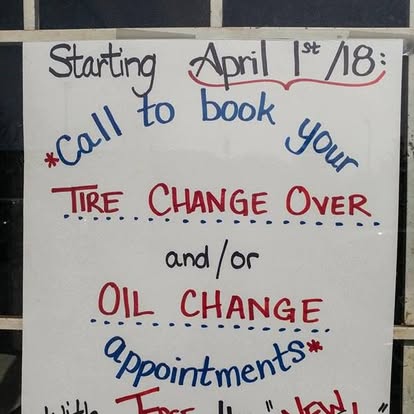 Starting April 1st/18:
*Call to book your
TIRE CHANGE OVER
and/or
OIL CHANGE
appointments*
With